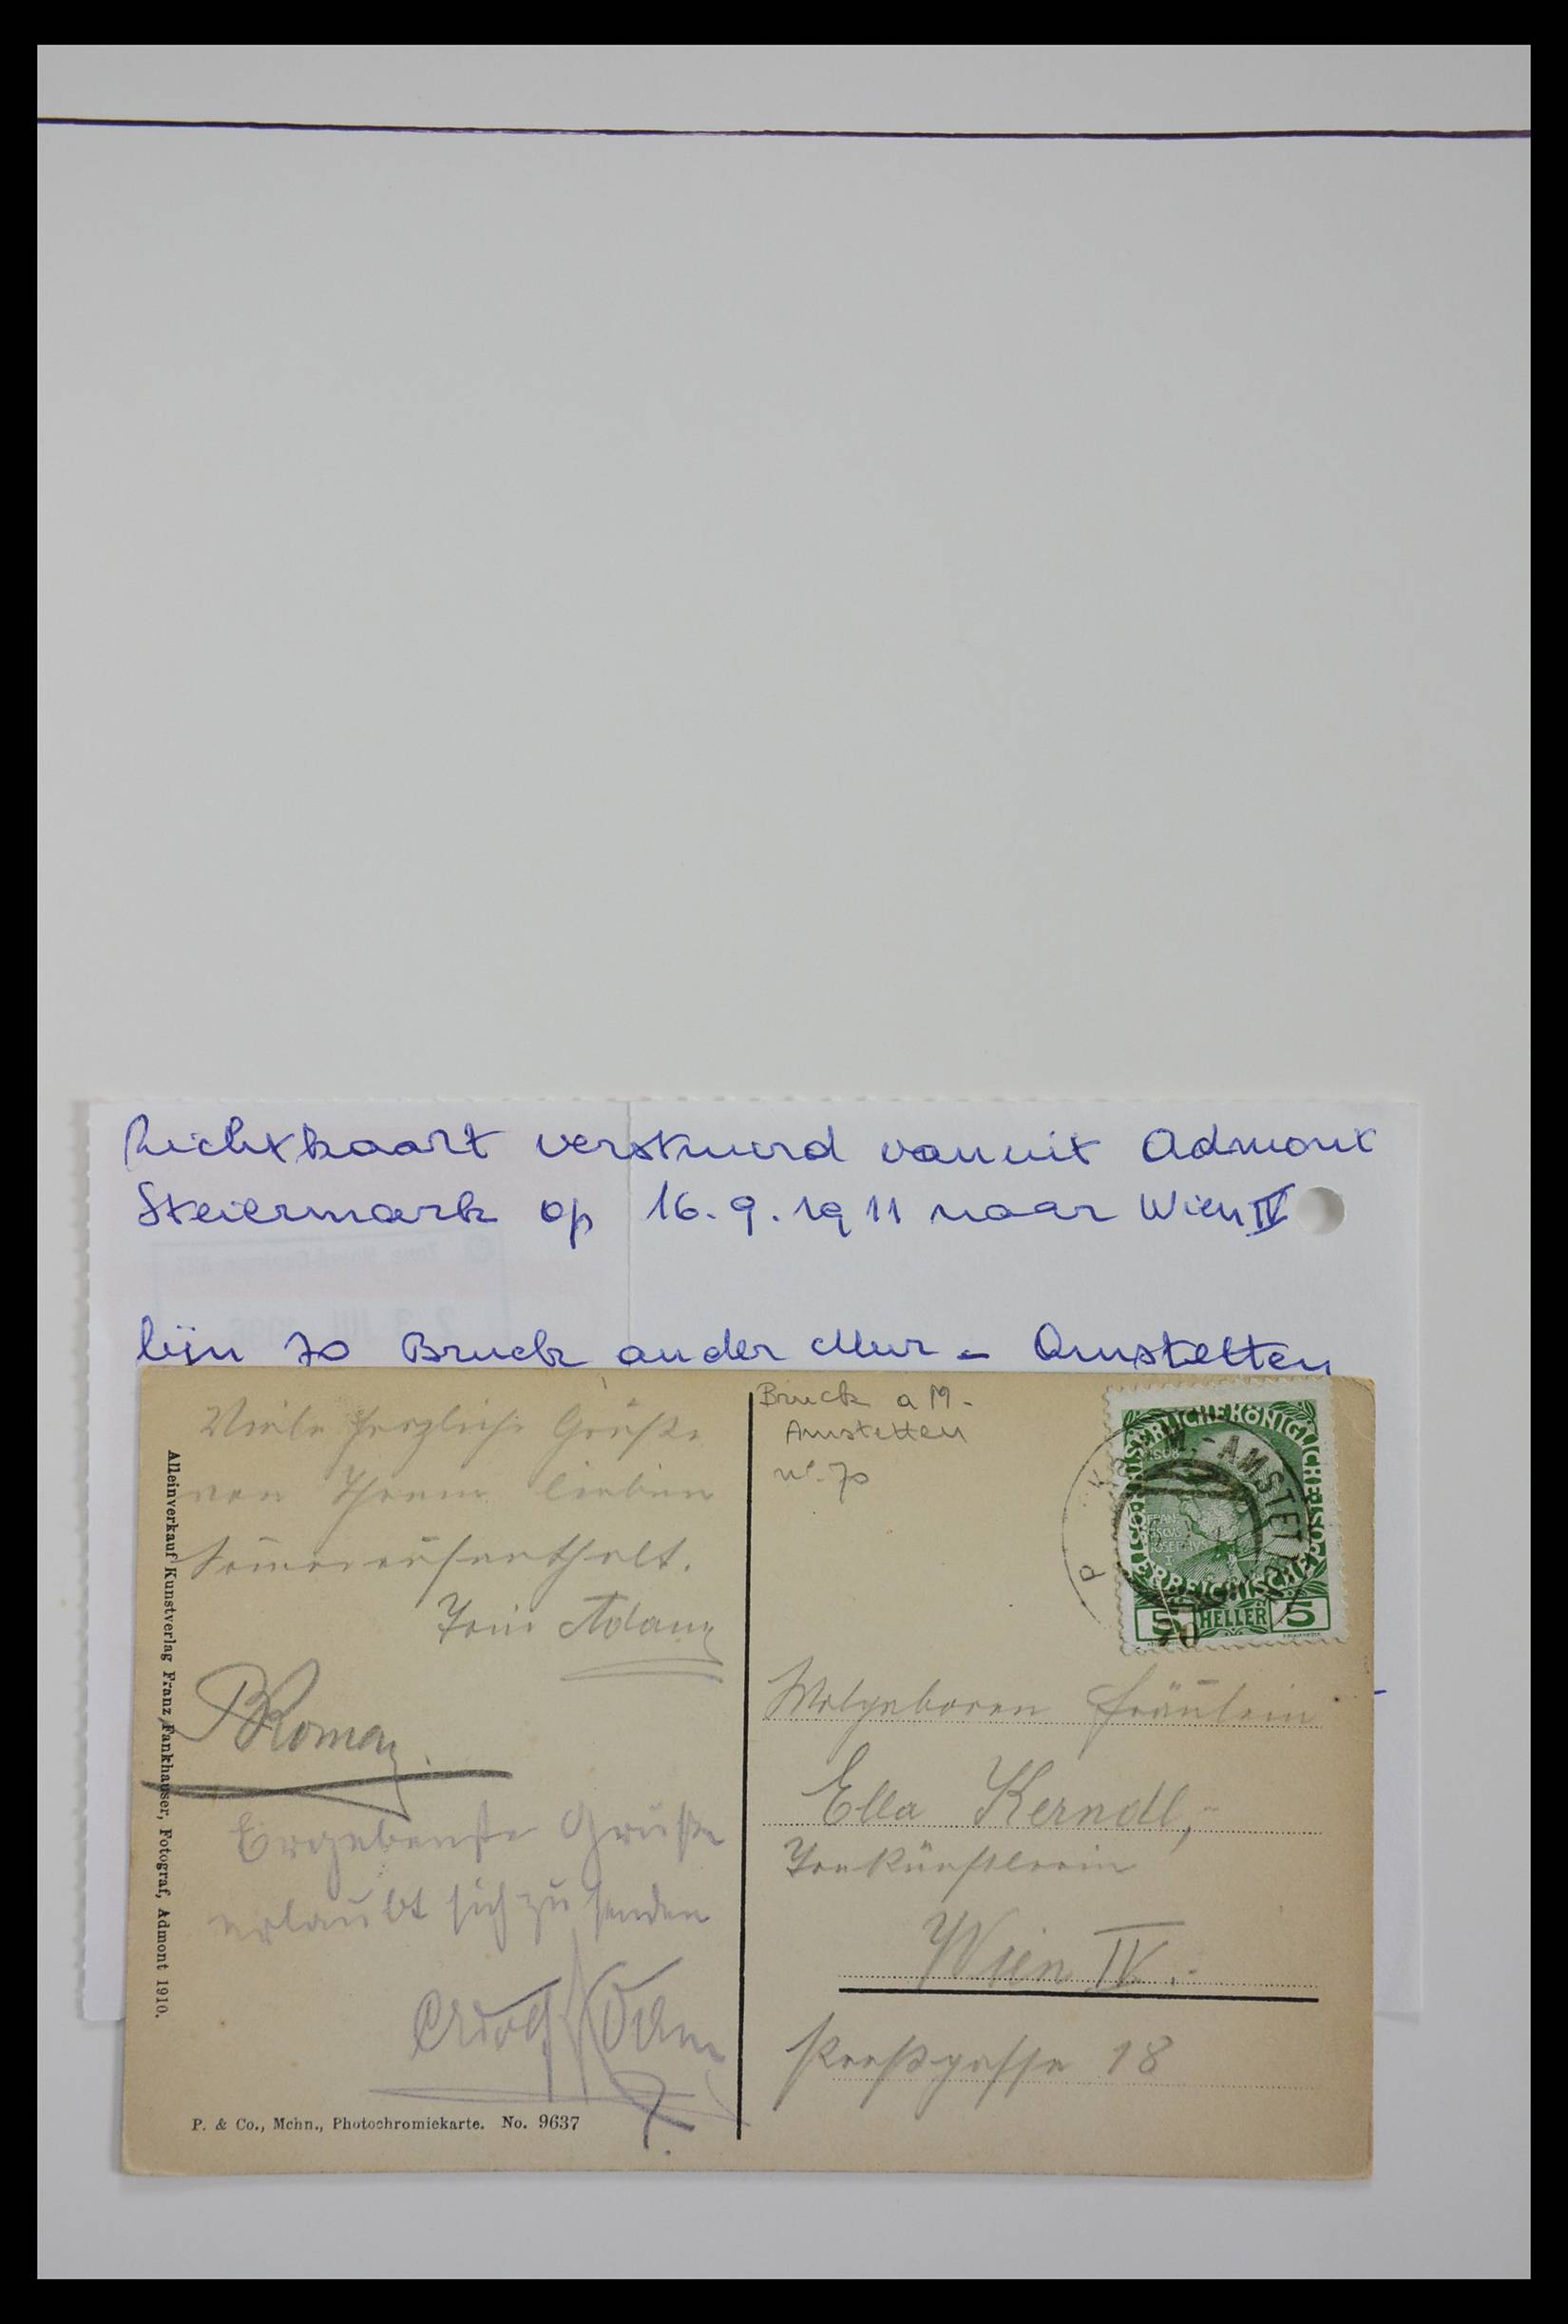 Zichtkaart verstuurd vanuit Admont
Steiermark op 16.9.1911 naar Wien IV
lijn 70 Bruck an der Mur - Amstetten
Viele herzliche Grüße
von Ihrem lieben
Sommeraufenthalt.
BRoman
Ergebenste Grüße
erlaubt sich zu senden
Alleinverkauf Kunstverlag Franz Fankhauser, Fotograf, Admont 1910.
P. & Co., Mchn., Photochromiekarte. No. 9637
Bruck a M.-
Amstetten
nr. 70
KAISERLICHE KÖNIGLICHE
ÖSTERREICHISCHE
FRAN
CISCVS
IOSEPHVS
I
5 HELLER 5
-AMSTET
70
Wolgeboren Fräulein
Ella Kerndl,-
Tonkünstlerin
Wien IV.-
Preßgasse 18